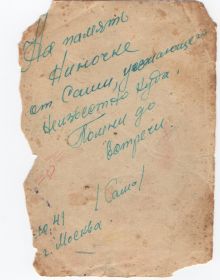 На память
Ниночке
от Саши, уезжающего
Неизвестно куда.
Помни до
встречи.
/Саша/
41
г. Москва